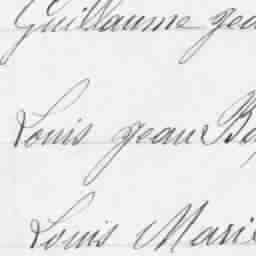 Guillaume gea
Louis geau Ba
Louis Marie